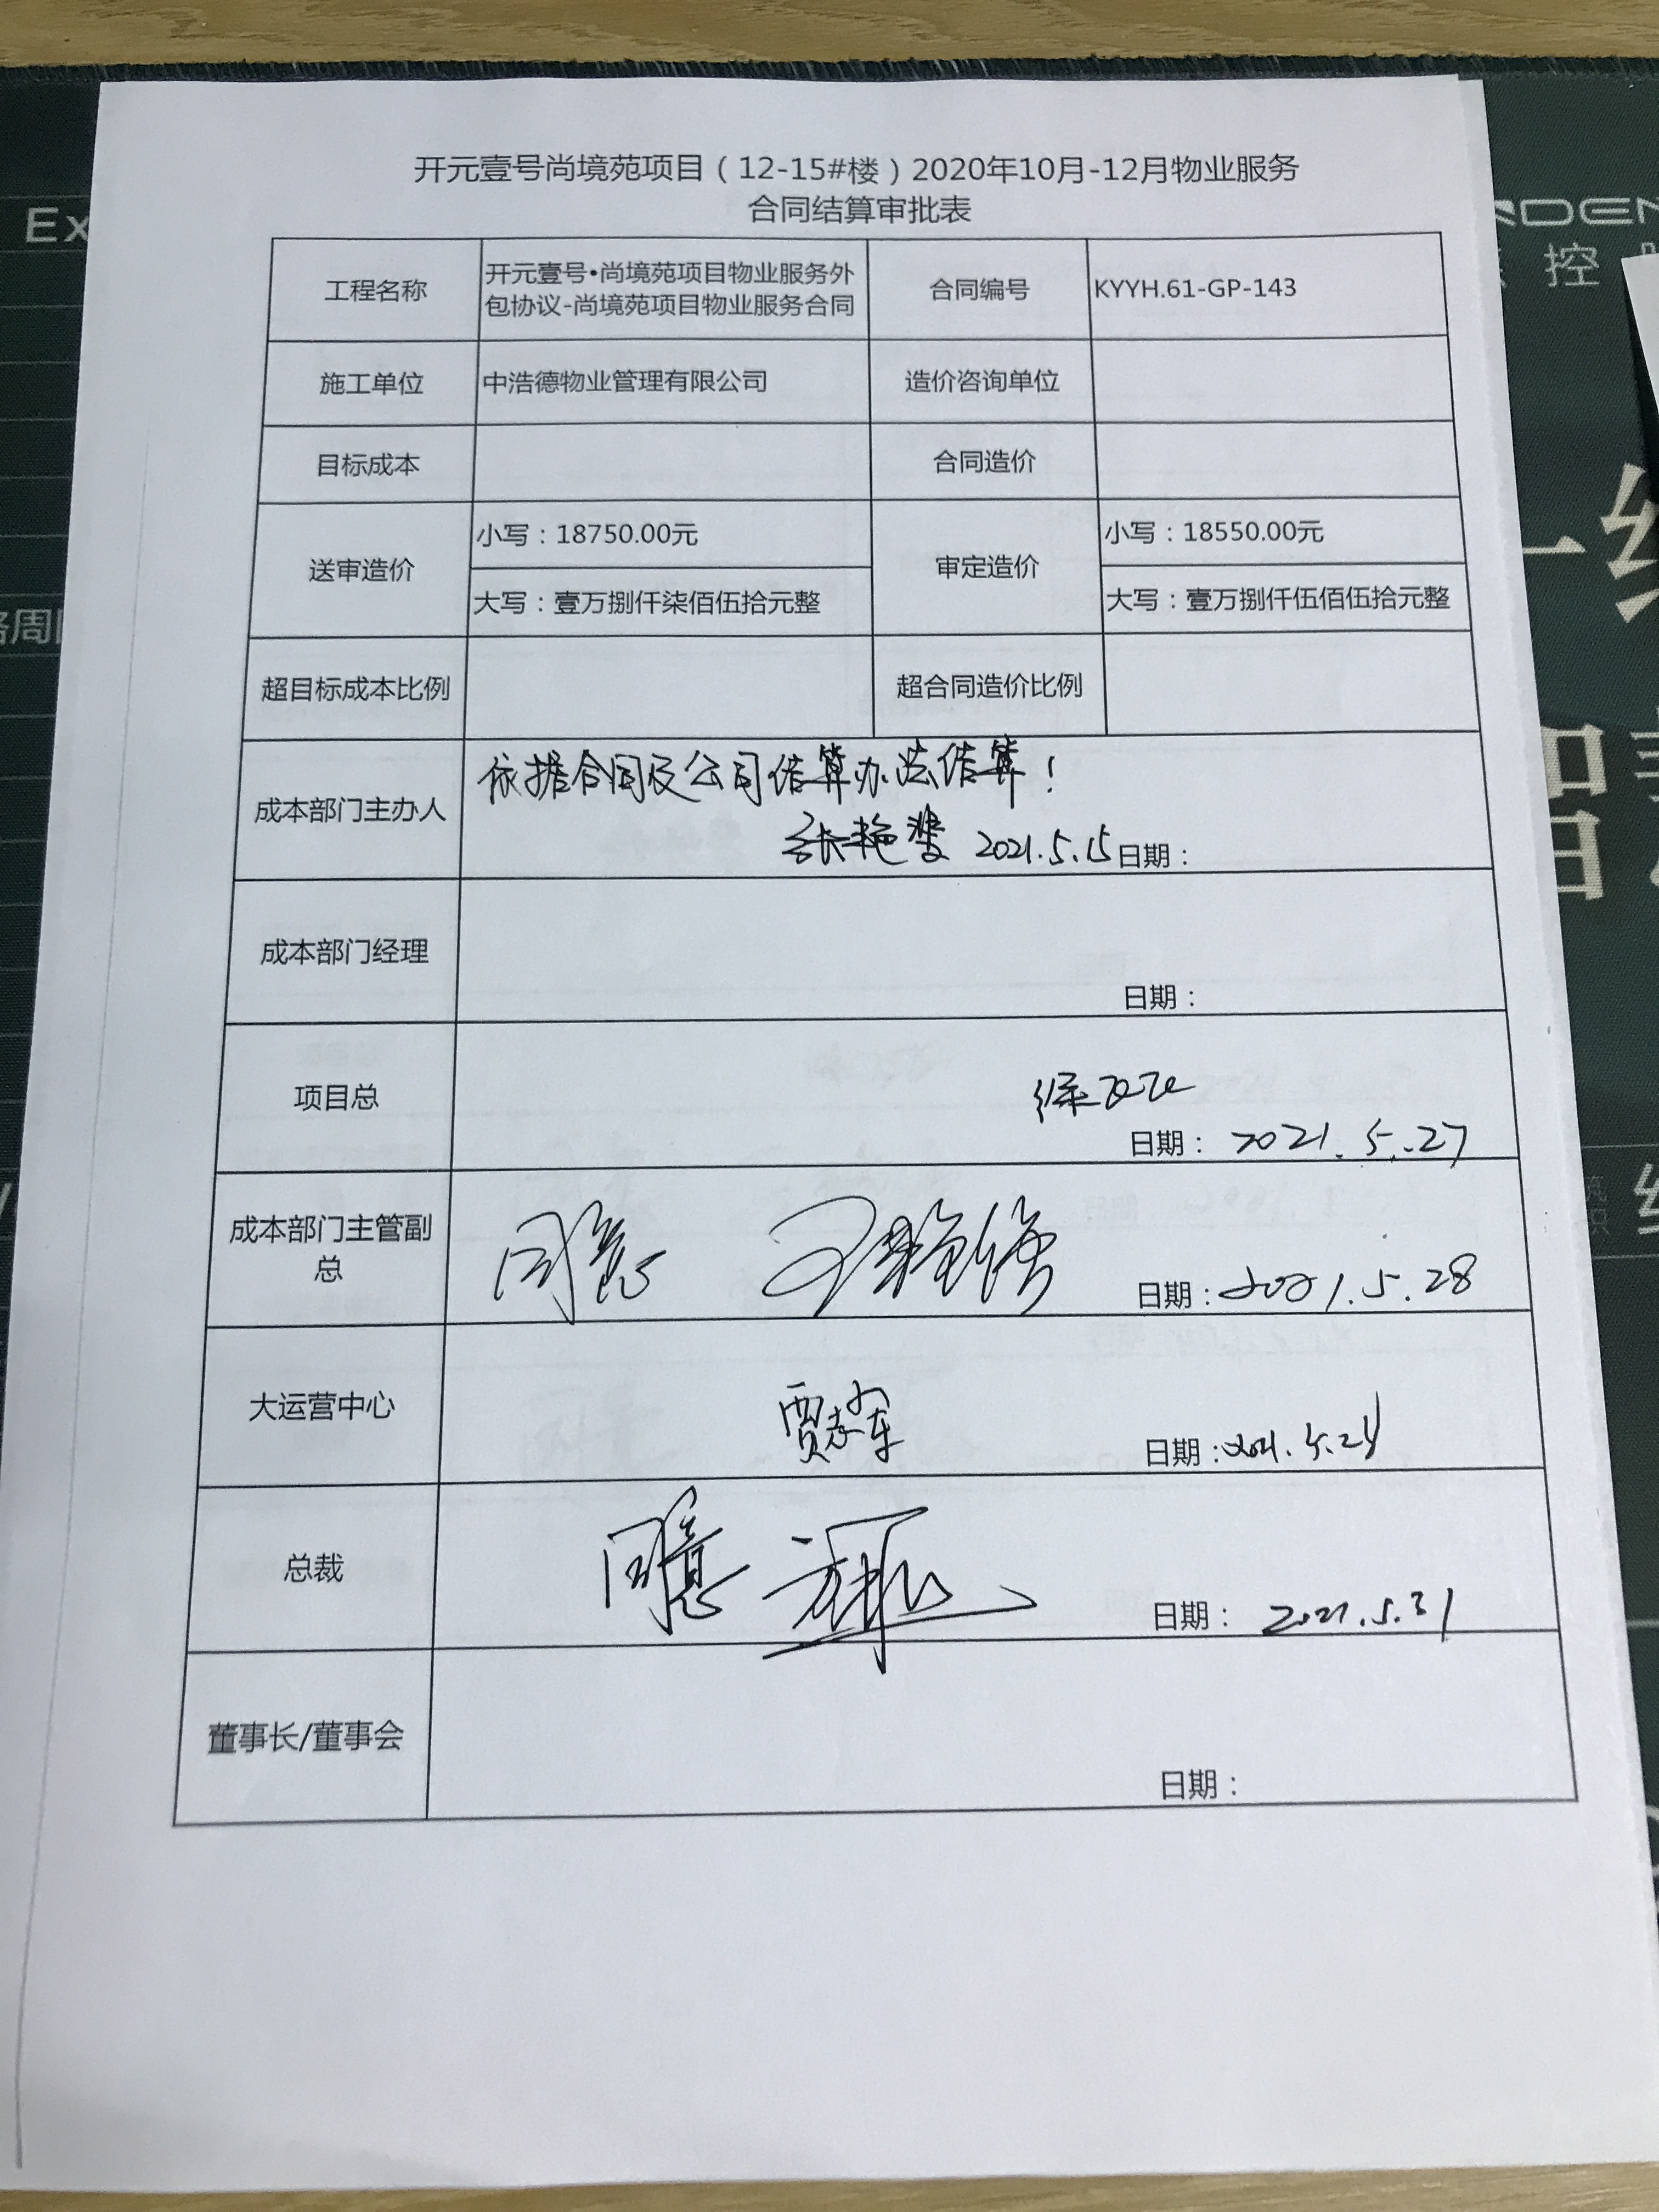 开元壹号尚境苑项目（12-15#楼）2020年10月-12月物业服务
合同结算审批表
工程名称
开元壹号•尚境苑项目物业服务外
包协议-尚境苑项目物业服务合同
合同编号
KYYH.61-GP-143
施工单位
中浩德物业管理有限公司
造价咨询单位
目标成本
合同造价
送审造价
小写：18750.00元
大写：壹万捌仟柒佰伍拾元整
审定造价
小写：18550.00元
大写：壹万捌仟伍佰伍拾元整
超目标成本比例
超合同造价比例
成本部门主办人
依据合同及公司结算办法结算！
张艳 2021.5.15日期：
成本部门经理
日期：
项目总
日期：2021.5.27
成本部门主管副
总
同意
日期：2021.5.28
大运营中心
贾
日期：2021.5.
总裁
同意
日期：2021.5.31
董事长/董事会
日期：
Ex
RDEN
控